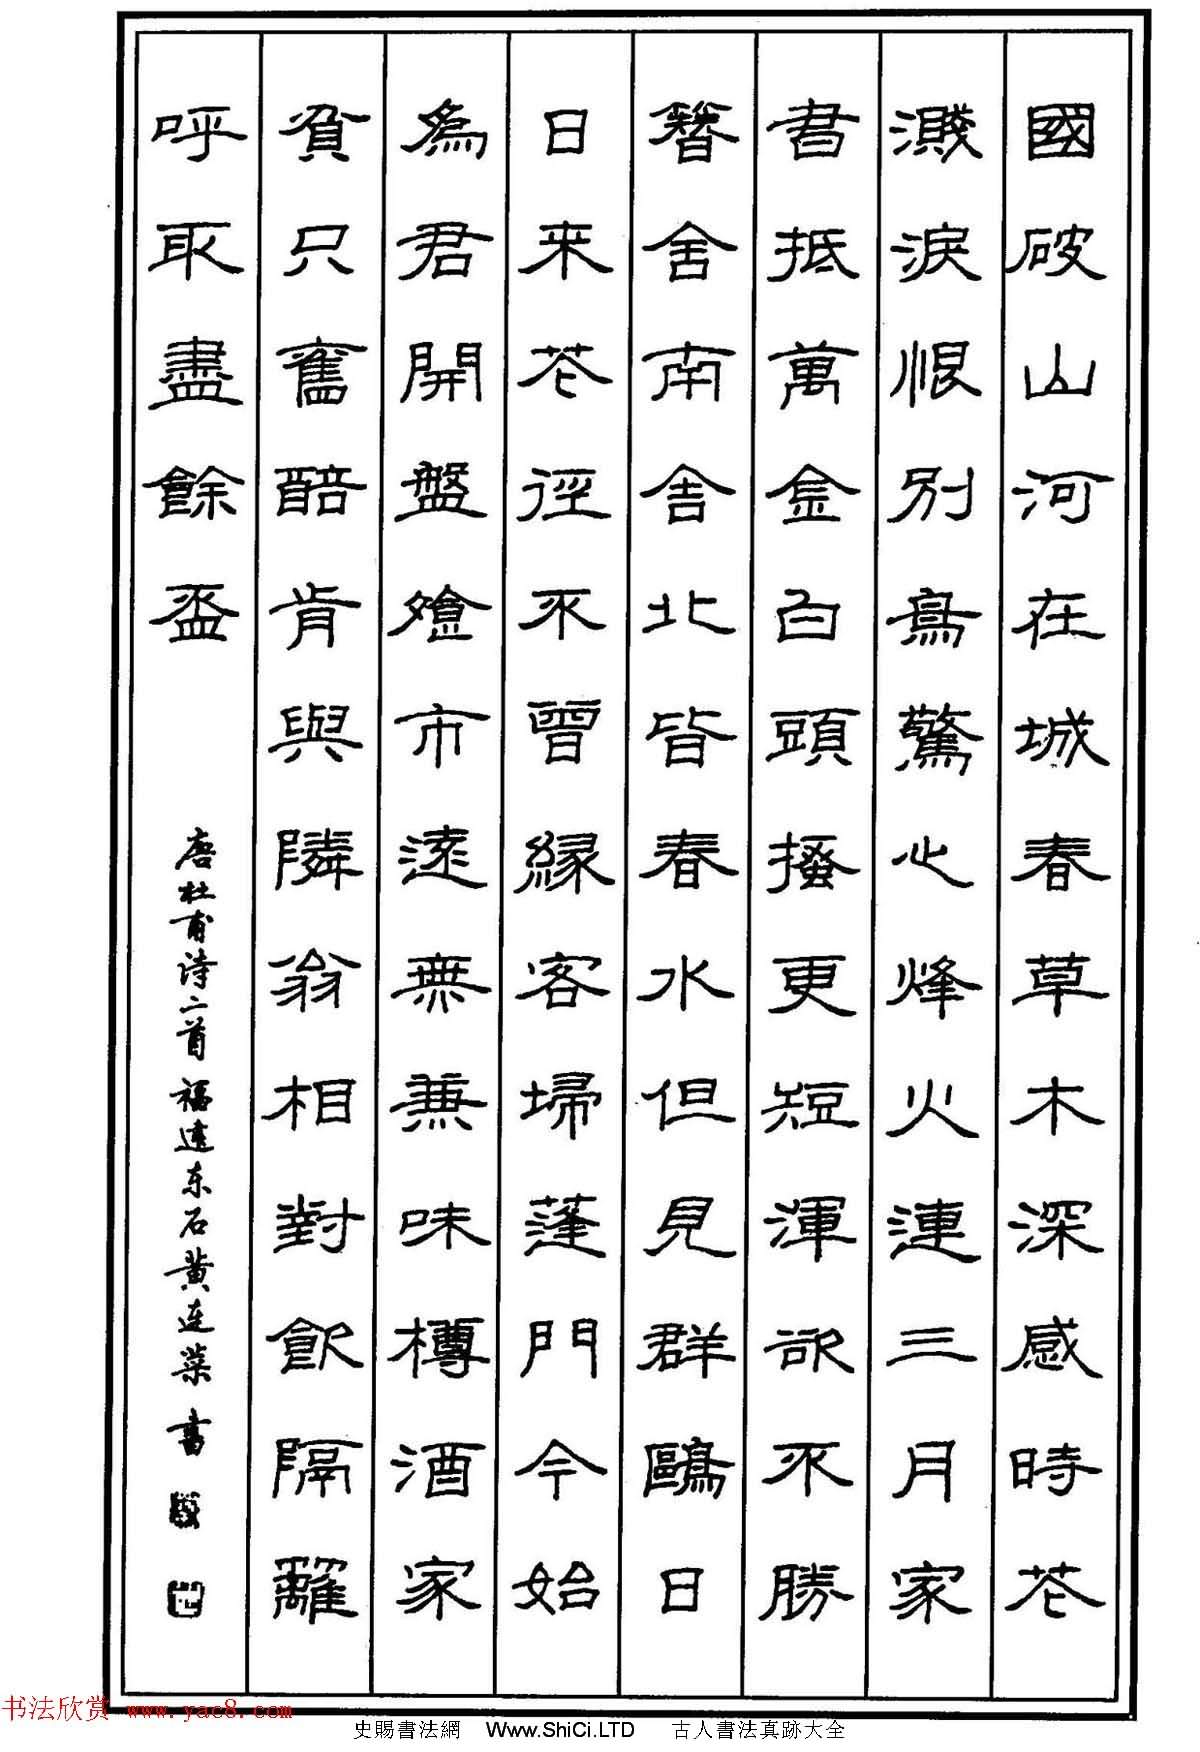 國破山河在城春草木深感時芲
濺淚恨別鳥驚心烽火連三月家
書抵萬金白頭搔更短渾欲不勝
簪舍南舍北皆春水但見群鷗日
日来芲徑不曾緣客埽蓬門今始
為君開盤飧市遠無兼味樽酒家
貧只舊醅肯與隣翁相對飲隔籬
呼取盡餘盃
唐杜甫诗二首 福建东石黄连荣書
书法欣赏 www.yac8.com
史賜書法網 Www.ShiCi.LTD 古人書法真跡大全